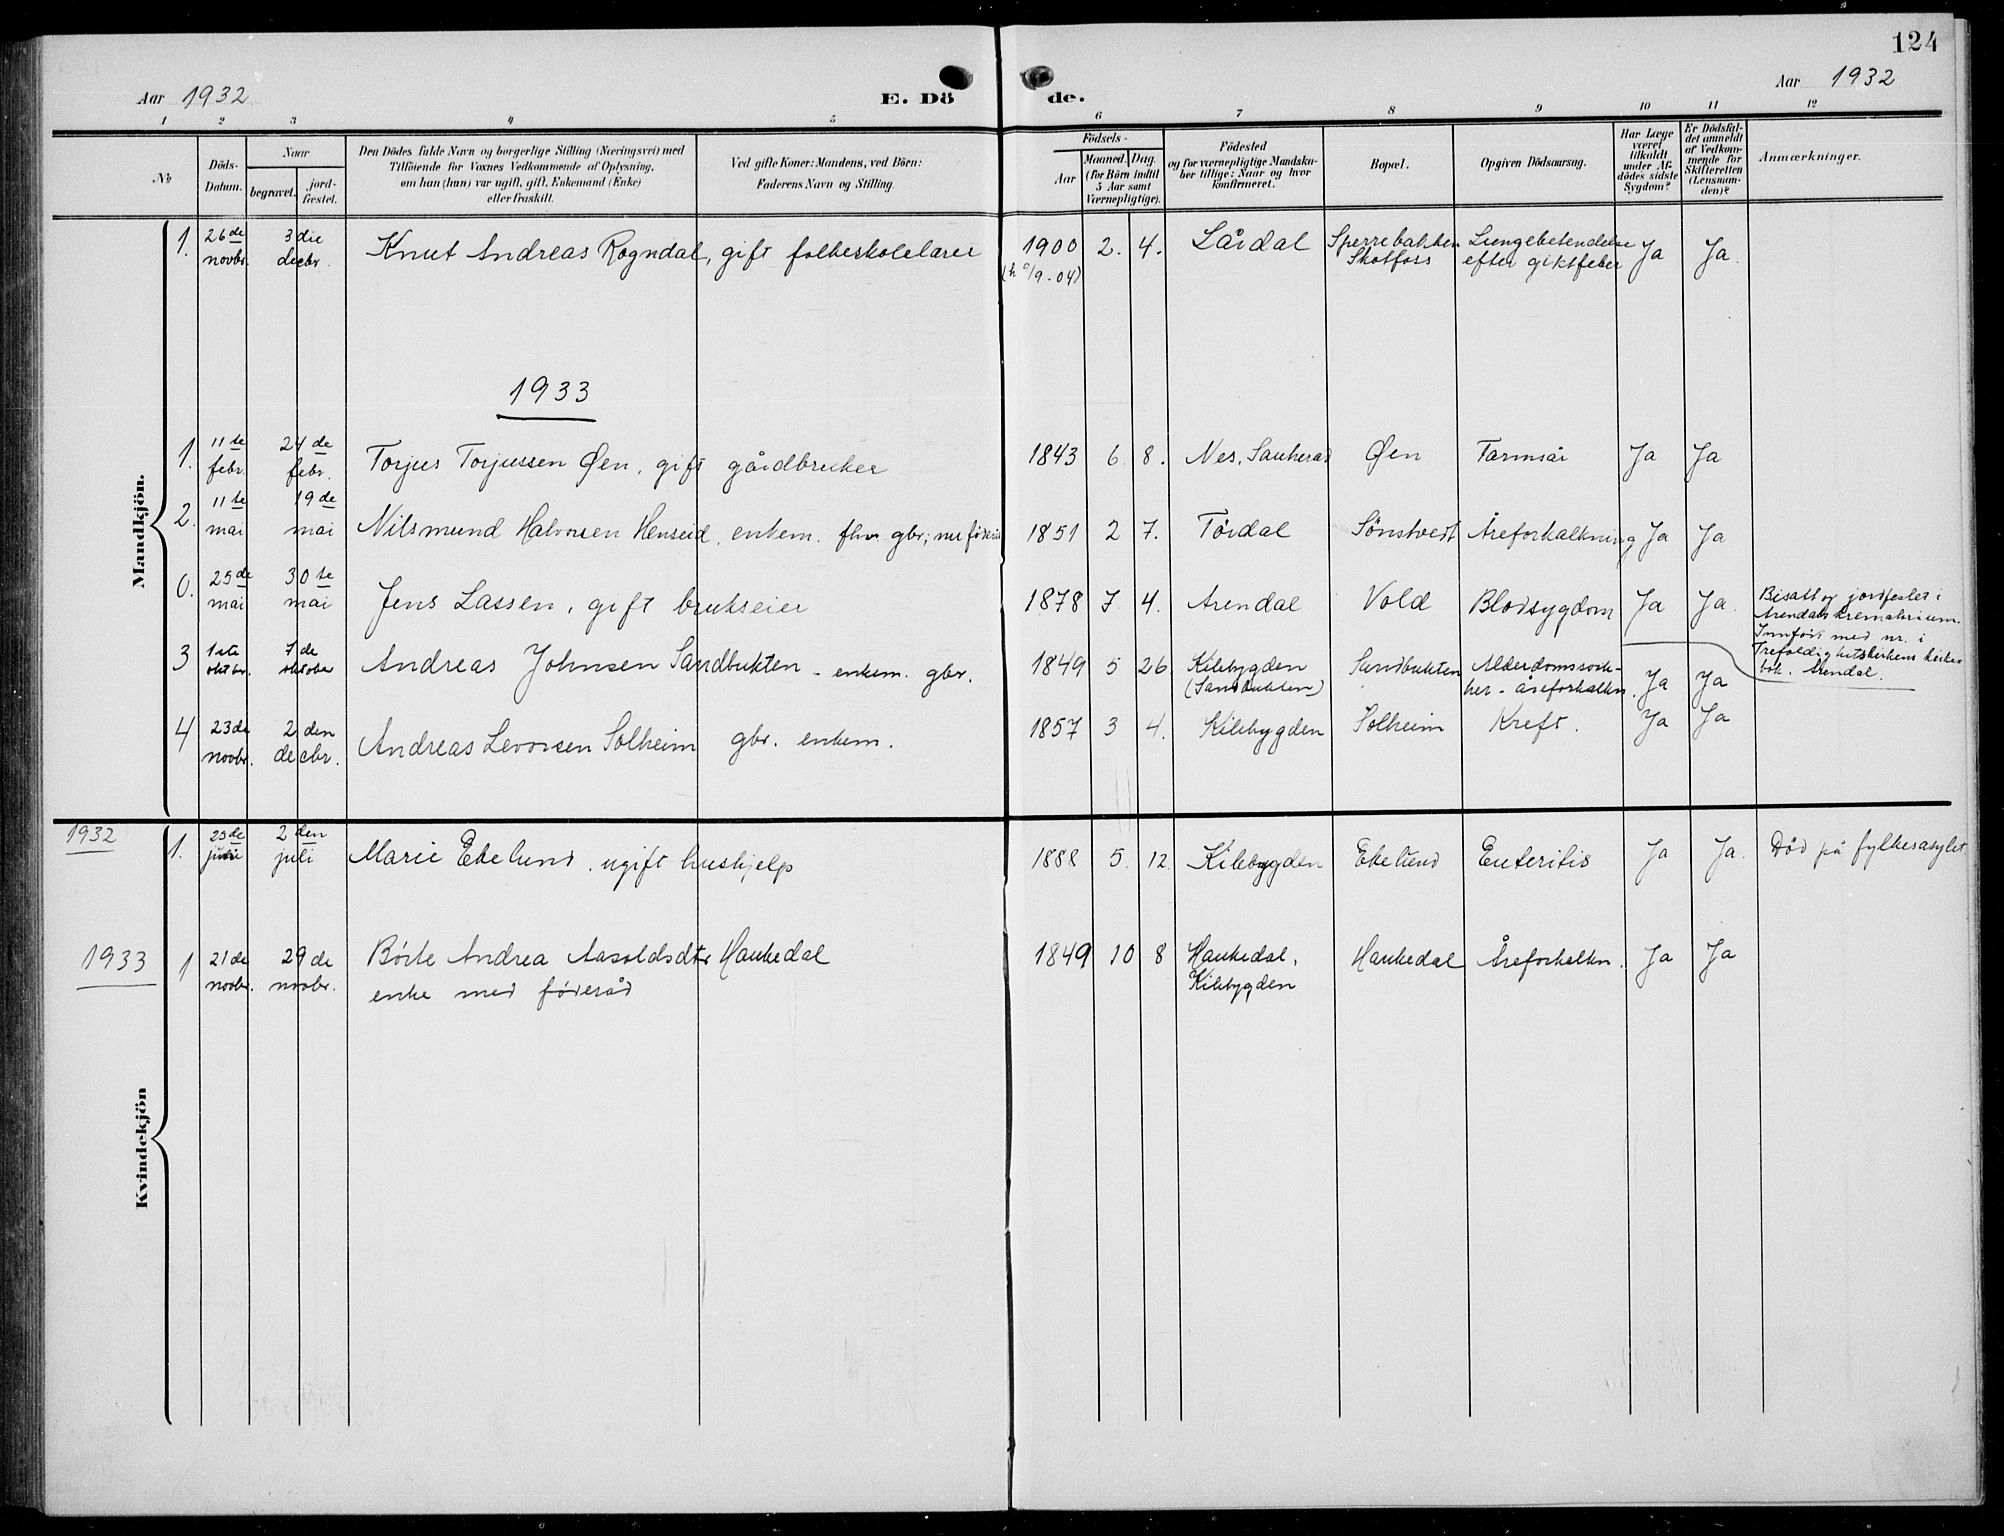 124
Aar 1932
E. Dö
de.
Aar 1932
1 2 3 4 5 6 7 8 9 10 11 12
№
Döds-Datum.
Naar
begravet.
jord-fæstet.
Den Dödes fulde Navn og borgerlige Stilling (Næringsvei) med
Tilföiende for Voxnes Vedkommende af Oplysning,
om han (hun) var ugift, gift, Enkemand (Enke)
eller fraskilt.
Ved gifte Koner: Mandens, ved Börn:
Faderens Navn og Stilling.
Födsels-
Aar
Maaned. Dag.
(for Börn indtil
5 Aar samt
Værnepligtige).
Födested
og for værnepligtige Mandska-
ber tillige: Naar og hvor
konfirmeret.
Bopæl.
Opgiven Dödsaarsag.
Har Læge
været
tilkaldt
under Af-
dödes sidste
Sygdom?
Er Dödsfal-
det anmeldt
af Vedkom-
mende for
Skifteretten
(Lensman-
den)?
Anmærkninger.
Mandkjön.
1. 26de novbr. 3die decbr. Knut Andreas Rogndal, gift folkeskolelærer 1900 2. 4. Lårdal Sperrebakken Skotfoss Lungebetendelse efter giktfeber Ja Ja.
1933
1. 11te febr. 24de febr. Torjus Torjussen Øen, gift gårdbruker 1843 6. 8. Nes, Sauherad Øen Tarmsår Ja Ja
2. 11te mai 19de mai Nilsmund Halvorsen Henseid, enkem. fhv. gbr; nu 1851 2 7. Tørdal Sønstvedt Åreforkalkning Ja Ja
0. 25de mai 30te mai Jens Lassen, gift brukseier 1878 7. 4. Arendal Vold Blodsygdom Ja Ja. Bisatt og jordfestet i
Arendals krematorium.
Innført med nr. i
Trefoldighetskirkens kirke-
bok. Arendal.
3 1ste oktbr. 7de oktober Andreas Johnsen Sandbukten - enkem. gbr. 1849 5 26. Kilebygden (Sandbukten) Sandbukten Alderdomssvak-
het - åreforkalkn. Ja Ja
4 23de novbr. 2den decbr. Andreas Levorsen Solheim gbr. enkem. 1857 3 4. Kilebygden Solheim Kreft. Ja Ja
Kvindekjön
1932
1. juni 2den juli Marie Ekelund, ugift hushjelp 1888 5. 12. Kilebygden Ekelund Enteritis Ja Ja. Død på fylkesasylet
1933
1 21de novbr. 29de novbr. Børte Andrea Aasoldsdtr Haukedal
enke med føderåd 1849 10 8 Haukedal, Kilebygden Haukedal Åreforkalkn. Ja Ja